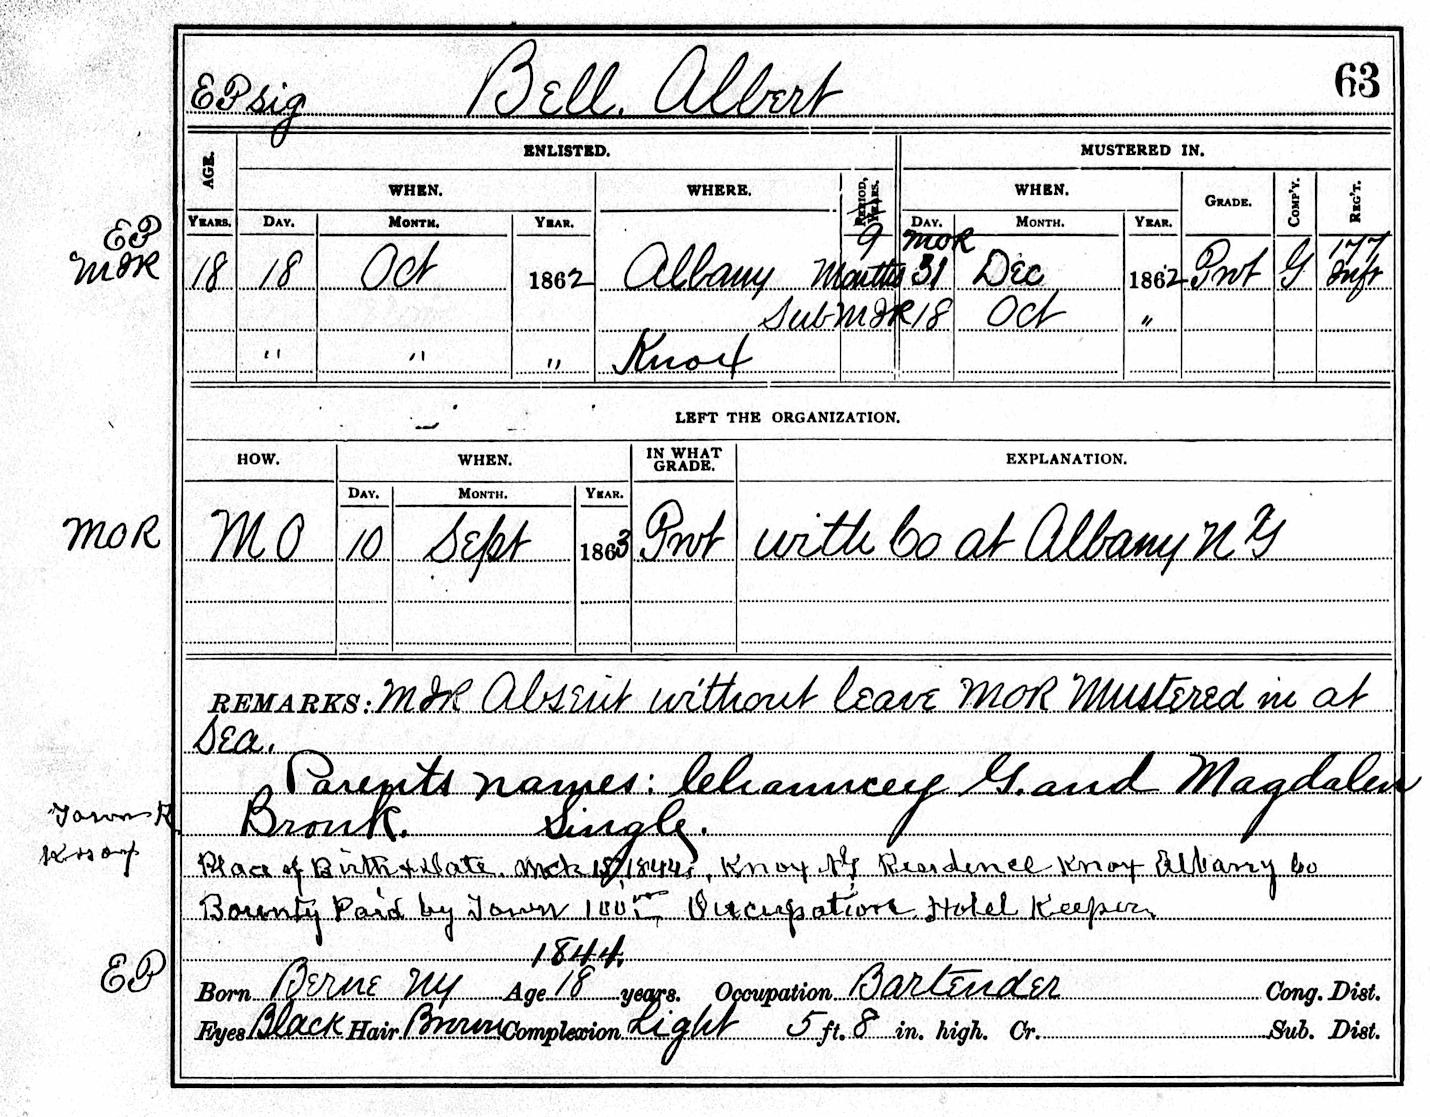 EP sig Bell, Albert 63
ENLISTED. MUSTERED IN.
AGE. WHEN. WHERE. PERIOD, YEARS. WHEN. GRADE. COMP'Y. REG'T.
YEARS. DAY. MONTH. YEAR. DAY. MONTH. YEAR.
EP 9 MOR 177
MIR 18 18 Oct 1862 Albany Months 31 Dec 1862 Pvt G Inft
Sub MIR 18 Oct "
" " " Knox
LEFT THE ORGANIZATION.
HOW. WHEN. IN WHAT GRADE. EXPLANATION.
DAY. MONTH. YEAR.
MOR MO 10 Sept 1863 Pvt with Co at Albany NY
REMARKS: MIR Absent without leave MOR Mustered in at
Sea.
Parents names: Chauncey G. and Magdalen
Town R. Bronk. Single.
Knox Place of Birth & Date. Mch 18, 1844, Knox NY Residence Knox Albany Co
Bounty Paid by Town 100 Occupation Hotel Keeper.
1844.
EP Born Berne NY Age 18 years. Occupation Bartender Cong. Dist.
Eyes Black Hair Brown Complexion Light 5 ft. 8 in. high. Cr. Sub. Dist.